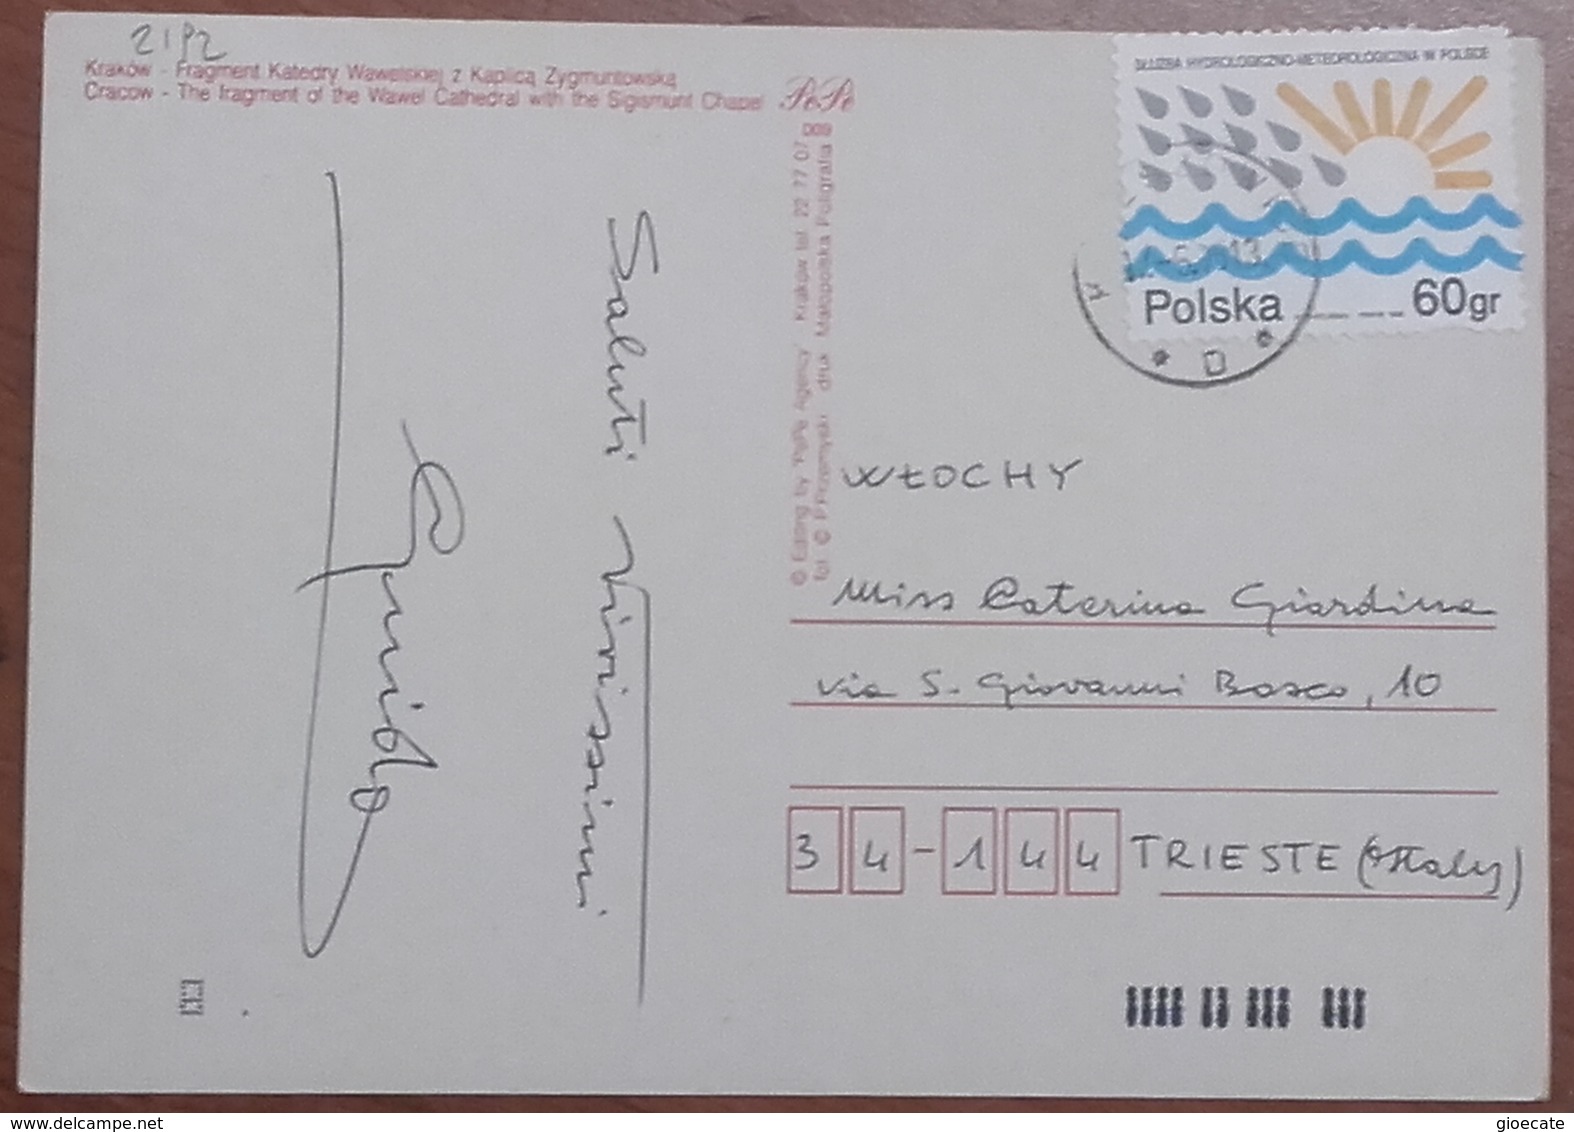 21P2
Kraków - Fragment Katedry Wawelskiej z Kaplicą Zygmuntowską
Cracow - The fragment of the Wawel Cathedral with the Sigismunt Chapel
PoPo
009
SŁUŻBA HYDROLOGICZNO-METEOROLOGICZNA W POLSCE
Polska 60gr
D
© Editing by "PoPo Agency" Kraków tel. 22 77 07
fot. © P. Przemyski druk Małopolska Poligrafia
Saluti Virissimi
Guido
WŁOCHY
Miss Caterina Giardina
via S. Giovanni Bosco, 10
34-144 TRIESTE (Italy)
www.delcampe.net
gioecate